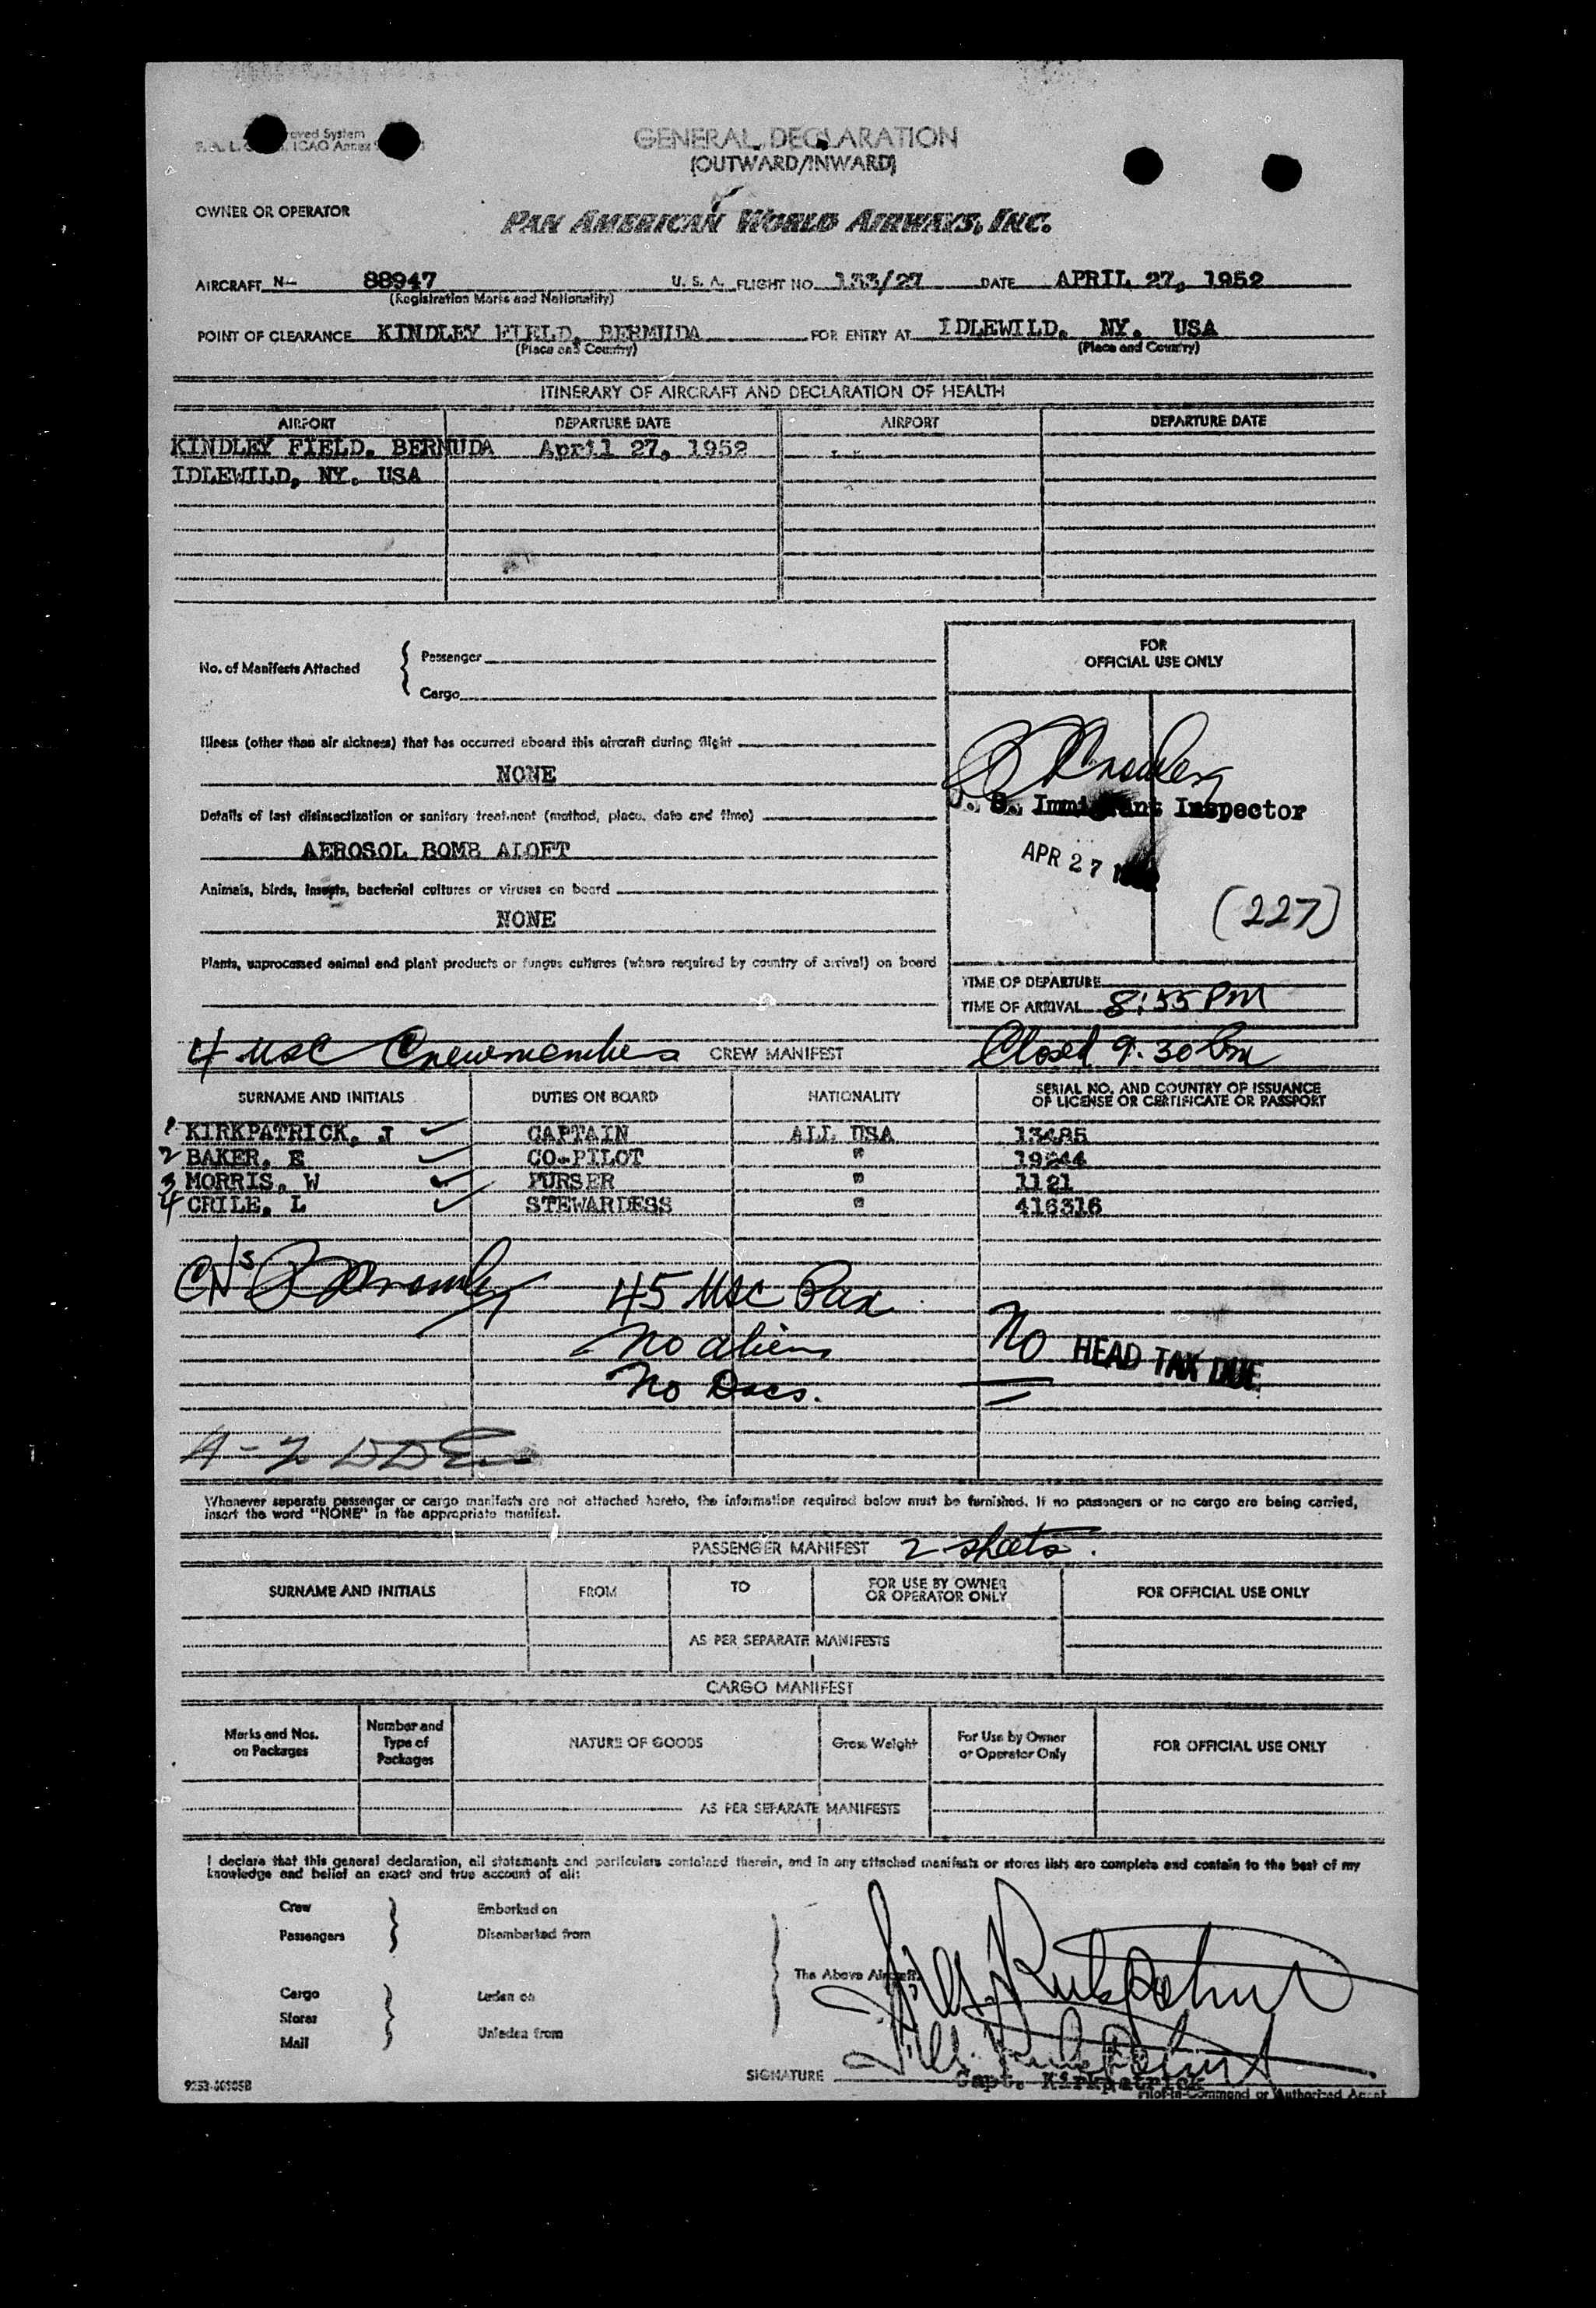 GENERAL DECLARATION
(OUTWARD/INWARD)
OWNER OR OPERATOR PAN AMERICAN WORLD AIRWAYS, INC.
AIRCRAFT N- 88947 U. S. A. FLIGHT NO. 133/27 DATE APRIL 27, 1952
(Registration Marks and Nationality)
POINT OF CLEARANCE KINDLEY FIELD, BERMUDA FOR ENTRY AT IDLEWILD, NY. USA
(Place and Country) (Place and Country)
ITINERARY OF AIRCRAFT AND DECLARATION OF HEALTH
AIRPORT DEPARTURE DATE AIRPORT DEPARTURE DATE
KINDLEY FIELD, BERMUDA April 27, 1952
IDLEWILD, NY. USA
No. of Manifests Attached { Passenger
Cargo
FOR
OFFICIAL USE ONLY
Illness (other than air sickness) that has occurred aboard this aircraft during flight
NONE
Details of last disinsectization or sanitary treatment (method, place, date and time)
AEROSOL BOMB ALOFT
Animals, birds, insects, bacterial cultures or viruses on board
NONE
Plants, unprocessed animal and plant products or fungus cultures (where required by country of arrival) on board
U. S. Immigrant Inspector
APR 27
(227)
TIME OF DEPARTURE
TIME OF ARRIVAL 8:55 PM
4 USC Crewmembers CREW MANIFEST Closed 9:30 Pm
SURNAME AND INITIALS DUTIES ON BOARD NATIONALITY SERIAL NO. AND COUNTRY OF ISSUANCE
OF LICENSE OR CERTIFICATE OR PASSPORT
1 KIRKPATRICK, J CAPTAIN ALL USA 13485
2 BAKER, E CO-PILOT " 19244
3 MORRIS, W PURSER " 1121
4 CRILE, L STEWARDESS " 416316
45 USC Pax
No aliens
No Docs.
No HEAD TAX DUE
Whenever separate passenger or cargo manifests are not attached hereto, the information required below must be furnished. If no passengers or no cargo are being carried,
insert the word "NONE" in the appropriate manifest.
PASSENGER MANIFEST 2 sheets.
SURNAME AND INITIALS FROM TO FOR USE BY OWNER
OR OPERATOR ONLY FOR OFFICIAL USE ONLY
AS PER SEPARATE MANIFESTS
CARGO MANIFEST
Marks and Nos.
on Packages Number and
Type of
Packages NATURE OF GOODS Gross Weight For Use by Owner
or Operator Only FOR OFFICIAL USE ONLY
AS PER SEPARATE MANIFESTS
I declare that this general declaration, all statements and particulars contained therein, and in any attached manifests or stores lists are complete and contain to the best of my
knowledge and belief an exact and true account of all:
Crew Embarked on
Passengers Disembarked from
The Above Aircraft.
Cargo Laden on
Stores
Mail Unladen from
SIGNATURE Capt. Kirkpatrick
Pilot-in-Command or Authorized Agent